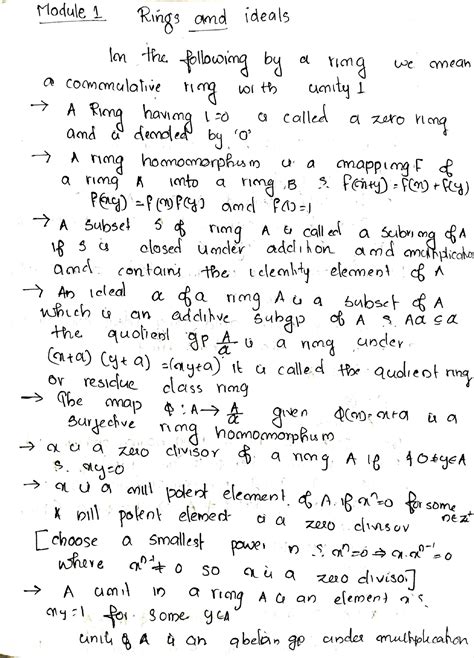 Module 1 Rings and ideals
In the following by a ring we mean
a commulative ring with unity 1
→ A Ring having 1=0 is called a zero ring
and is denoted by '0'
→ A ring homomorphism is a mapping f of
a ring A into a ring B s. f(x+y)=f(x)+f(y)
f(xy)=f(x)f(y) and f(1)=1
→ A subset S of ring A is called a subring of A
if S is closed under addition and multiplication
and contains the identity element of A
→ An ideal a of a ring A is a subset of A
which is an additive subgp of A s. Aa⊆a
the quotient gp A/a is a ring under
(x+a)(y+a)=(xy+a) it is called the quotient ring
or residue class ring
→ The map ϕ:A→A/a given ϕ(x)=x+a is a
surjective ring homomorphism
→ x is a zero divisor of a ring A if ∃ 0≠y∈A
s. xy=0
→ x is a nill potent element of A if xⁿ=0 for some
n∈z⁺
x nill potent element is a zero divisor
[choose a smallest power n s. xⁿ=0 ⇒ x.xⁿ⁻¹=0
where xⁿ⁻¹≠0 so x is a zero divisor]
→ A unit in a ring A is an element x s.
xy=1 for some y∈A
units of A is an abelan gp under multiplication